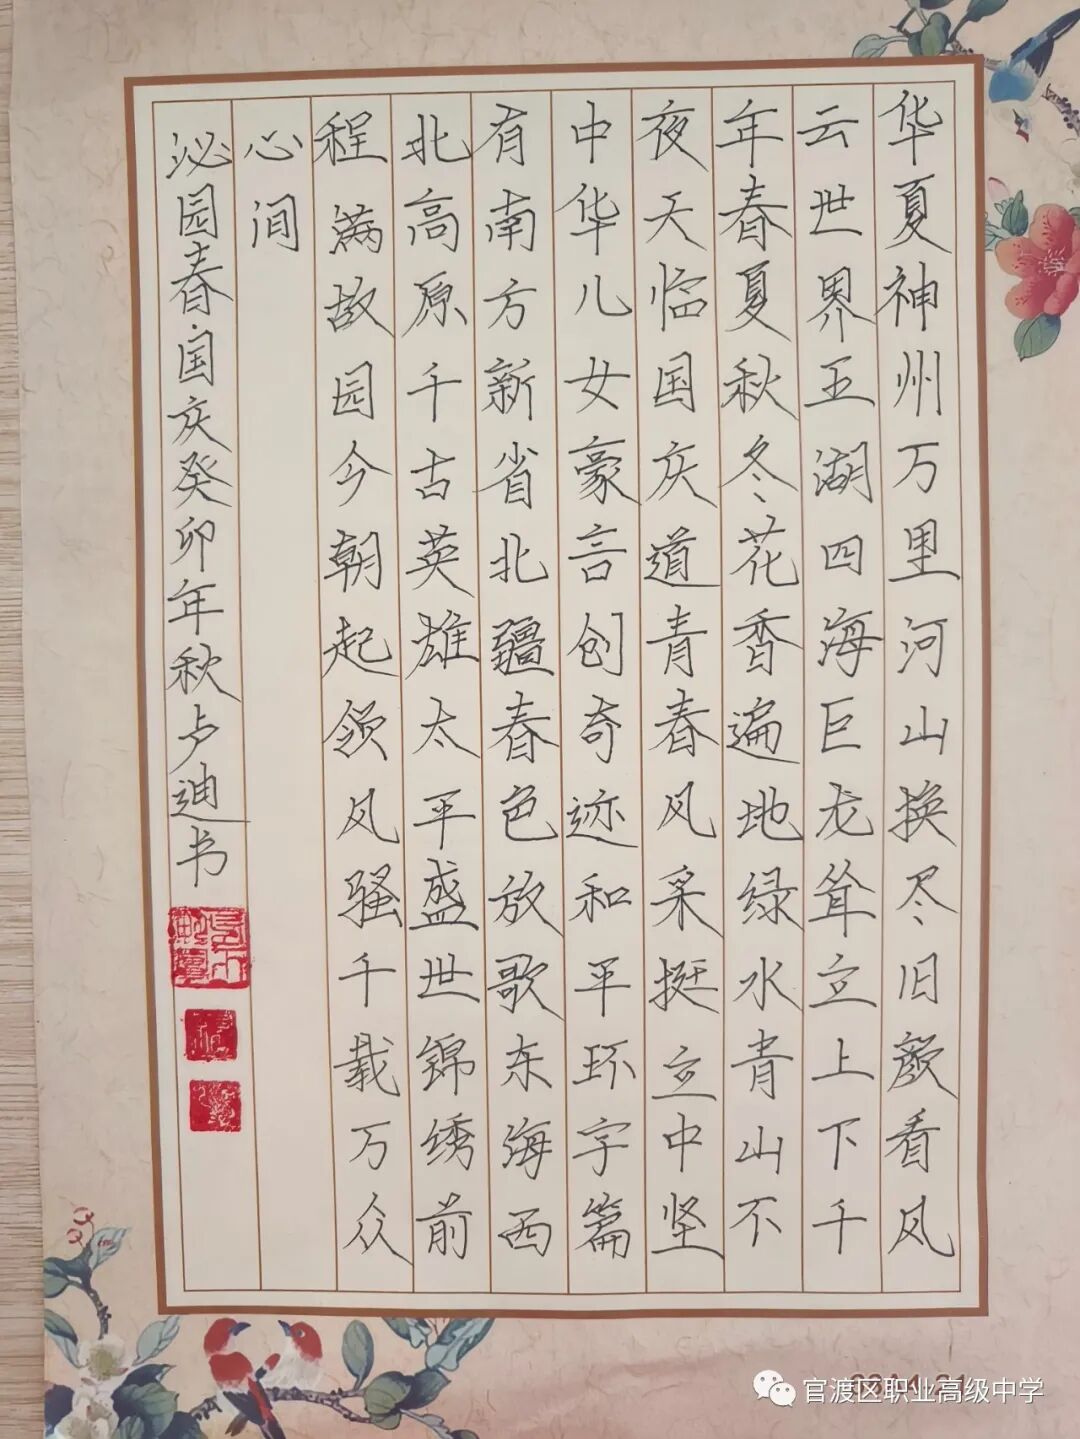 华夏神州万里河山换尽旧颜看风
云世界五湖四海巨龙耸立上下千
年春夏秋冬花香遍地绿水青山不
夜天临国庆道青春风采挺立中坚
中华儿女豪言创奇迹和平环宇篇
有南方新省北疆春色放歌东海西
北高原千古英雄太平盛世锦绣前
程满故园今朝起领风骚千载万众
心间
沁园春·国庆癸卯年秋卢迪书
官渡区职业高级中学